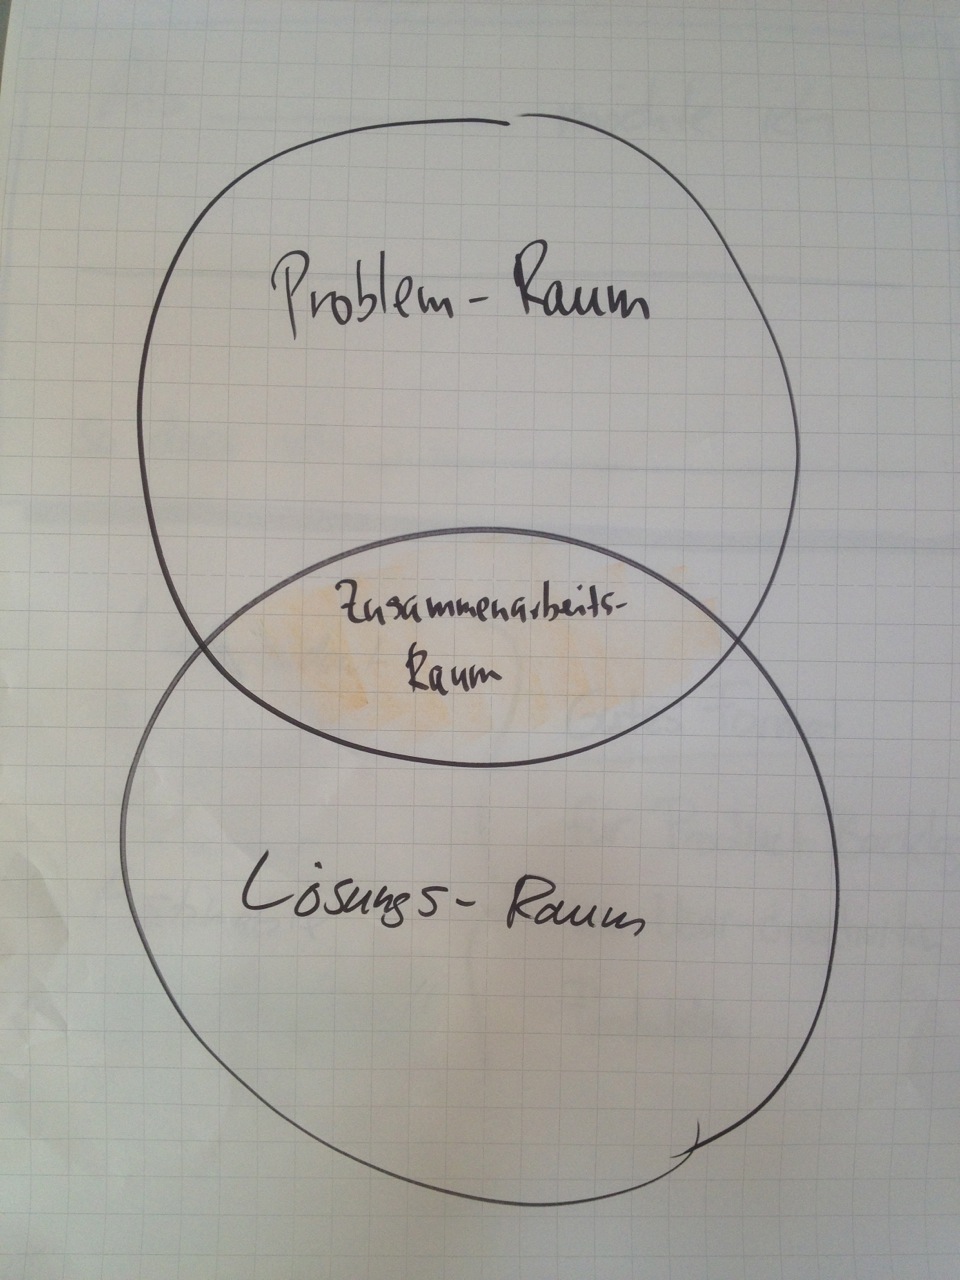 Problem-Raum
Zusammenarbeits-
Raum
Lösungs-Raum